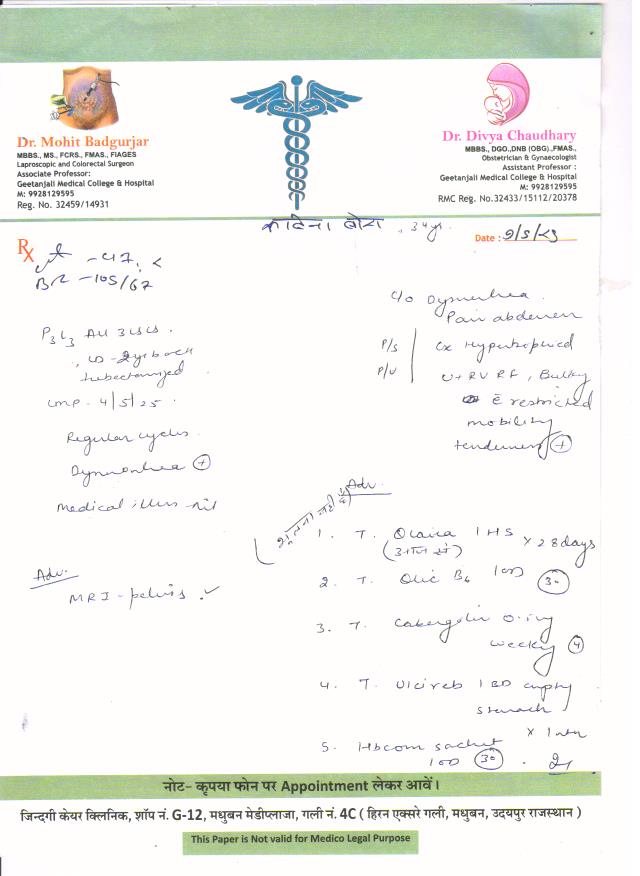 Dr. Mohit Badgurjar
MBBS., MS., FCRS., FMAS., FIAGES
Laproscopic and Colorectal Surgeon
Associate Professor:
Geetanjali Medical College & Hospital
M: 9928129595
Reg. No. 32459/14931
Dr. Divya Chaudhary
MBBS., DGO.,DNB (OBG).,FMAS.,
Obstetrician & Gynaecologist
Assistant Professor :
Geetanjali Medical College & Hospital
M: 9928129595
RMC Reg. No.32433/15112/20378
34yr.
Date :
Rx
wt - 47.
BP - 105/67
P3L3 All 3 LSCS .
LD - 2yr back
tubectomized
LMP - 4/5/25 .
Regular cycles
Dysmenorrhea +
Medical illness - nil
Adv.
MRI - pelvis . ✓
c/o Dysmenorrhea .
Pain abdomen
P/S
Cx Hypertrophied
P/V
Ut RV RF , Bulky
c̄ restricted
mobility
tenderness +
Adv.
भूलना नहीं है
1. T. 1 HS x 28 days
(आज से)
2. T. B6 1 OD 30
3. T. Cabergolin
weekly 4
4. T. 1 BD empty
stomach
5. sachet
1 OD 30 .
नोट- कृपया फोन पर Appointment लेकर आवें।
जिन्दगी केयर क्लिनिक, शॉप नं. G-12, मधुबन मेडीप्लाजा, गली नं. 4C ( हिरन एक्सरे गली, मधुबन, उदयपुर राजस्थान )
This Paper is Not valid for Medico Legal Purpose